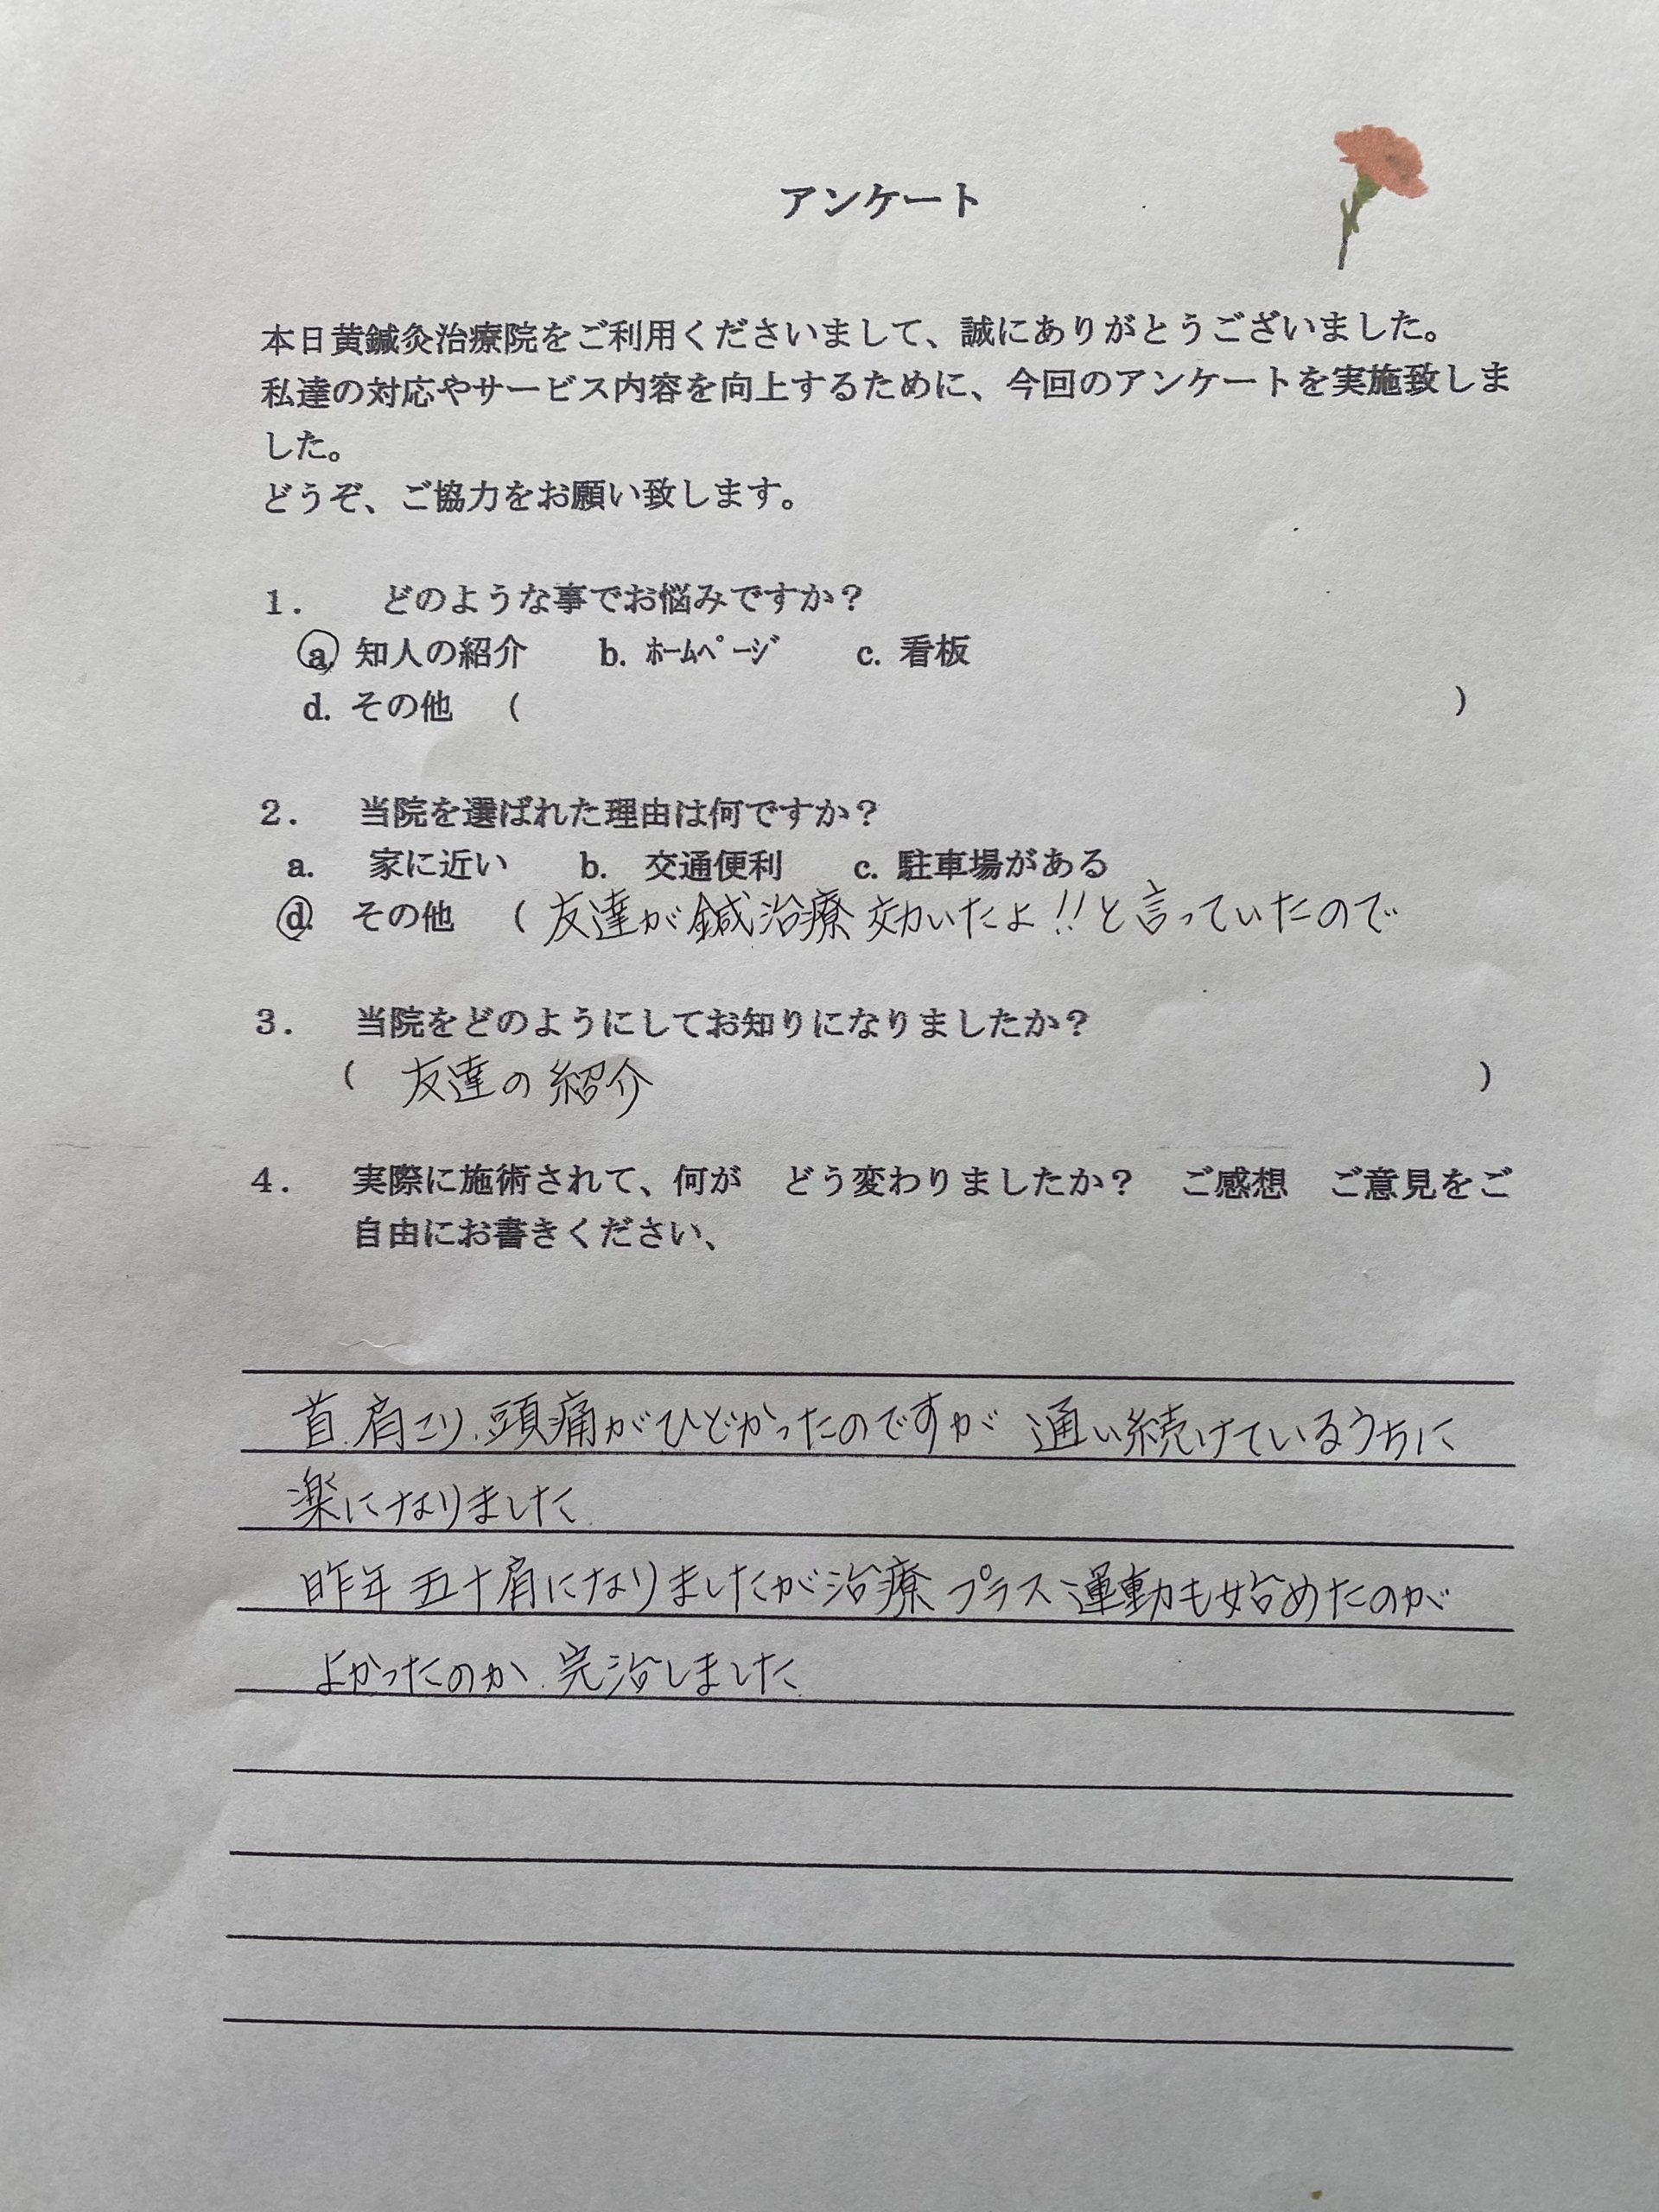 アンケート
本日黄鍼灸治療院をご利用くださいまして、誠にありがとうございました。
私達の対応やサービス内容を向上するために、今回のアンケートを実施致しま
した。
どうぞ、ご協力をお願い致します。
1. どのような事でお悩みですか？
a. 知人の紹介 b. ﾎｰﾑﾍﾟｰｼﾞ c. 看板
d. その他 ( )
2. 当院を選ばれた理由は何ですか？
a. 家に近い b. 交通便利 c. 駐車場がある
d. その他 ( 友達が鍼治療効いたよ!!と言っていたので
3. 当院をどのようにしてお知りになりましたか？
( 友達の紹介 )
4. 実際に施術されて、何が どう変わりましたか？ ご感想 ご意見をご
自由にお書きください、
首、肩こり、頭痛がひどかったのですが 通い続けているうちに
楽になりました.
昨年 五十肩になりましたが治療 プラス 運動も始めたのが
よかったのか、完治しました.